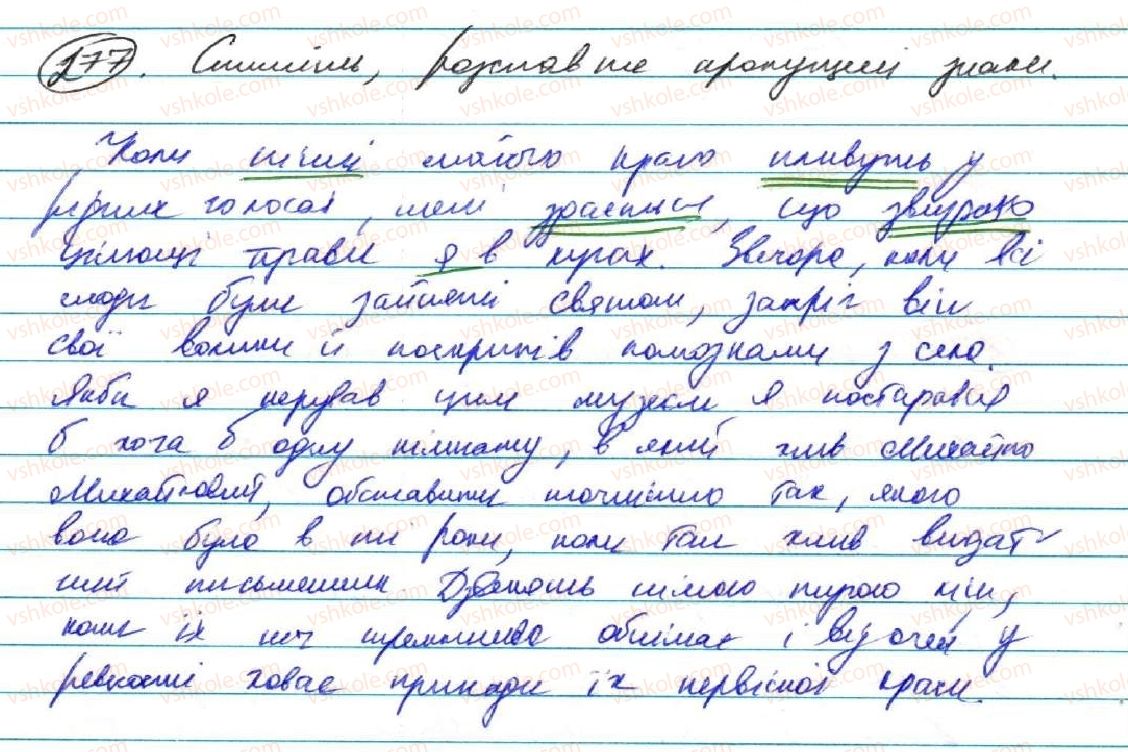 277. Спишіть, розставте пропущені знаки.
Коли пісні мойого краю пливуть у
рідних голосах, мені здається, що збираю
цілющі трави я в лугах. Звечора, коли всі
люди були зайняті святом, запріг він
свої волики й поскрипів помозками з села.
Якби я керував цим музеєм, я постарався
б хоча б одну кімнату, в якій жив Михайло
Михайлович, обставити точнісінько так, якою
вона була в ті роки, коли там жив видат
ний письменник. Дзвенять німою лірою ліси,
коли їх ніч тремтливо обнімає і від очей у
ревнощі ховає принади їх первісної краси.